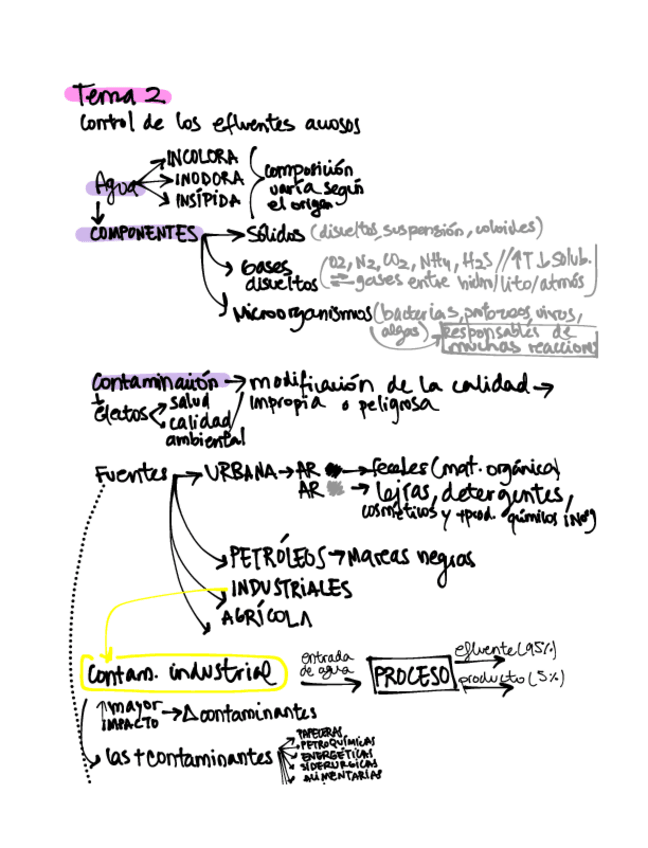 Tema 2
Control de los efluentes acuosos
Agua
INCOLORA
INODORA
INSÍPIDA
composición
varía según
el origen
COMPONENTES → Sólidos (disueltos, suspensión, coloides)
Gases
disueltos
(O2, N2, CO2, NH4, H2S // ↑T ↓ Solub.
⇌ gases entre hidro/lito/atmós
Microorganismos (bacterias, protozoos, virus,
algas) → Responsables de
muchas reaccion
Contaminación → modificación de la calidad →
impropia o peligrosa
+
efectos
salud
calidad
ambiental
Fuentes → URBANA → AR → fecales (mat. orgánica)
AR → lejías, detergentes,
cosméticos y + prod. químicos
PETRÓLEOS → Mareas negras
INDUSTRIALES
AGRÍCOLA
Contam. industrial
entrada
de agua
PROCESO
efluente (95%)
producto (5%)
↑ mayor
IMPACTO → Δ contaminantes
las + contaminantes
PAPELERAS
PETROQUÍMICAS
ENERGÉTICAS
SIDERÚRGICAS
ALIMENTARIAS